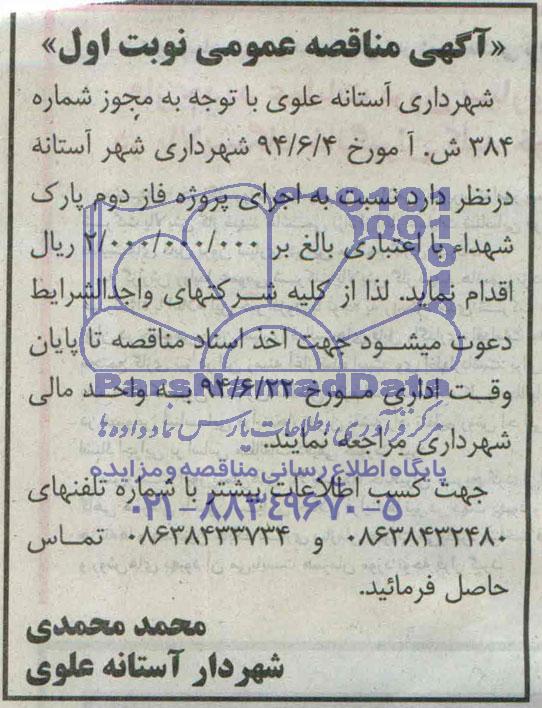 «آگهی مناقصه عمومی نوبت اول»
شهرداری آستانه علوی با توجه به مجوز شماره
۳۸۴ ش. آ مورخ ۹۴/۶/۴ شهرداری شهر آستانه
درنظر دارد نسبت به اجرای پروژه فاز دوم پارک
شهداء با اعتباری بالغ بر ۲/۰۰۰/۰۰۰/۰۰۰ ریال
اقدام نماید. لذا از کلیه شرکتهای واجدالشرایط
دعوت میشود جهت اخذ اسناد مناقصه تا پایان
وقت اداری مورخ ۹۴/۶/۲۲ به واحد مالی
ParsNamadData
شهرداری مراجعه نمایند.
مرکز فرآوری اطلاعات پارس نماد داده ها
پایگاه اطلاع رسانی مناقصه و مزایده
جهت کسب اطلاعات بیشتر با شماره تلفنهای
۰۲۱-۸۸۳۴۹۶۷۰-۵
۰۸۶۳۸۴۳۲۴۸۰ و ۰۸۶۳۸۴۳۳۷۳۴ تماس
حاصل فرمائید.
محمد محمدی
شهردار آستانه علوی